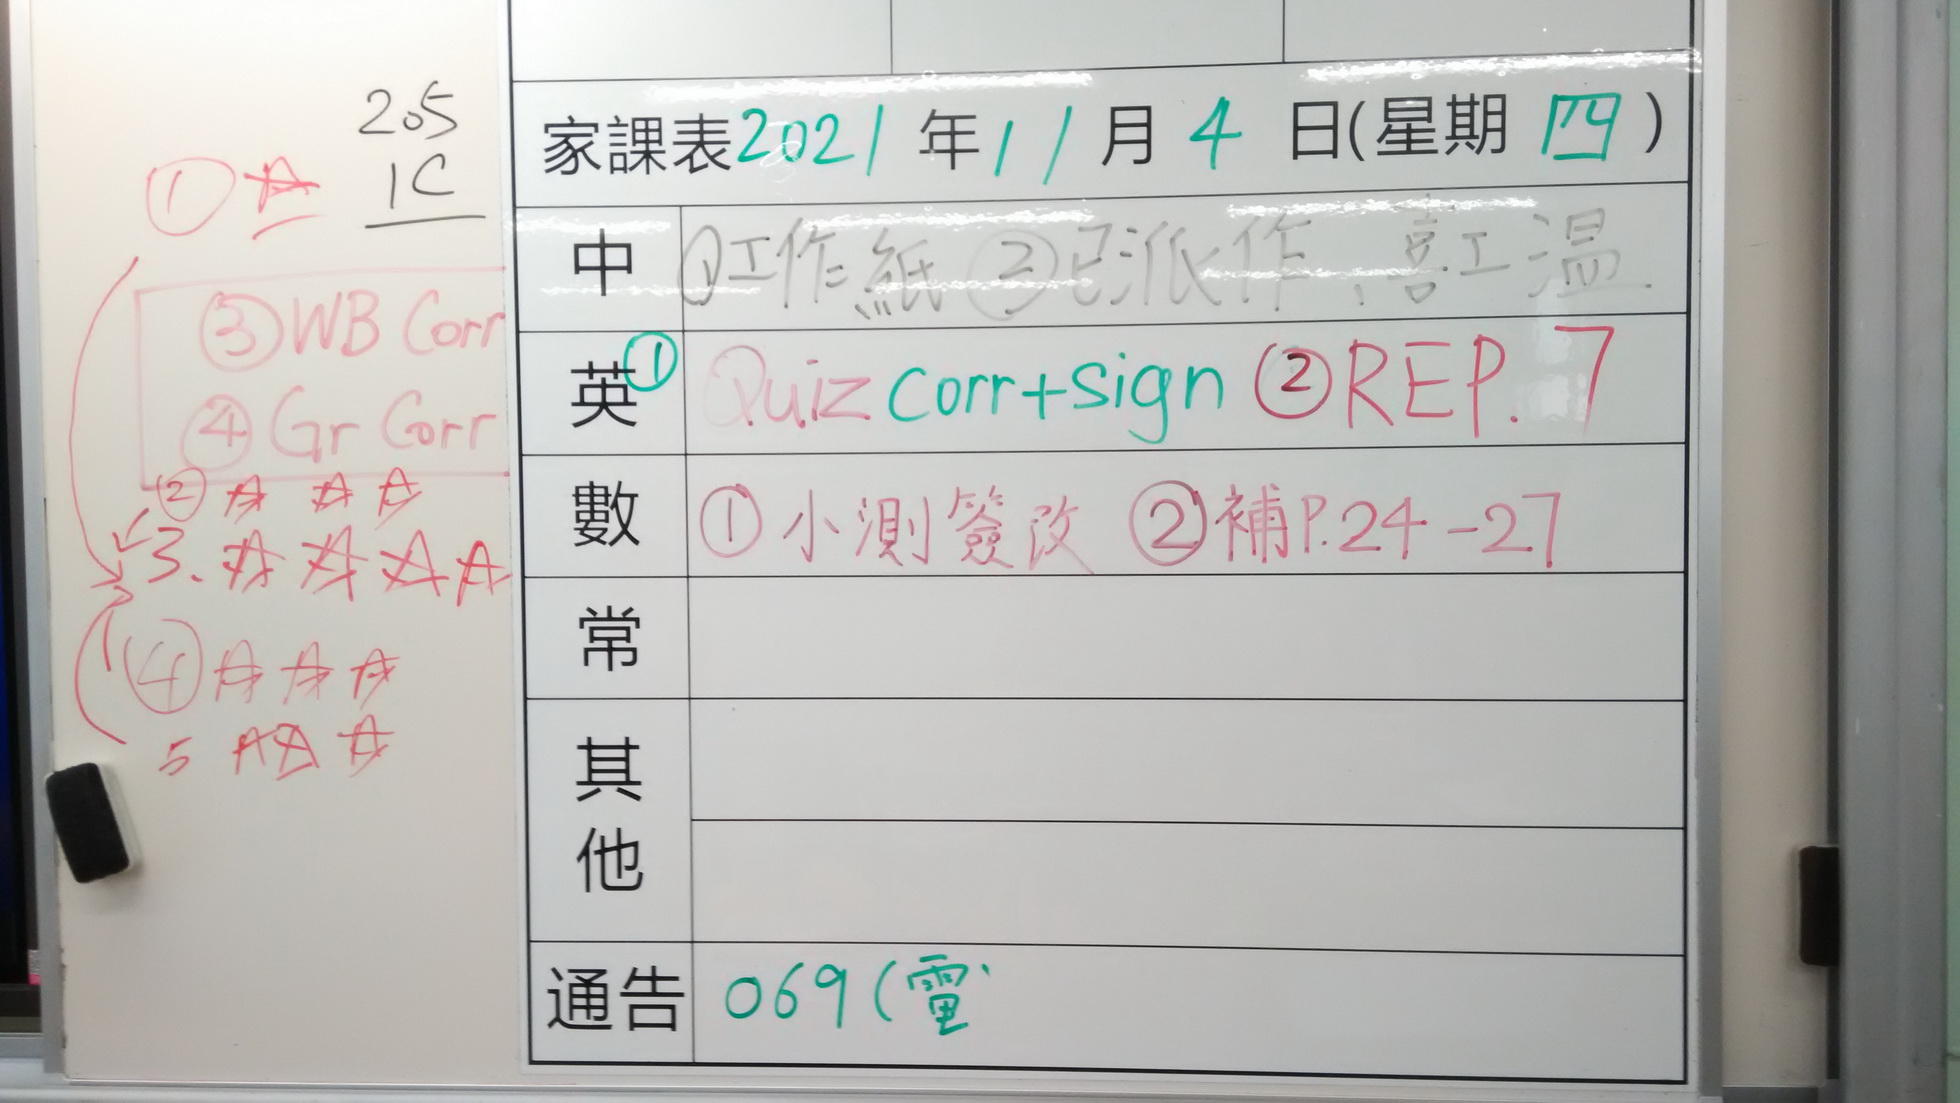 205
1C
①
③WB Corr
④Gr Corr
②
3.
④
5
家課表2021年11月4日(星期四)
中 ①工作紙 ②已派作
英 ①Quiz Corr+sign ②REP.7
數 ①小測簽改 ②補P.24-27
常
其他
通告 069(電